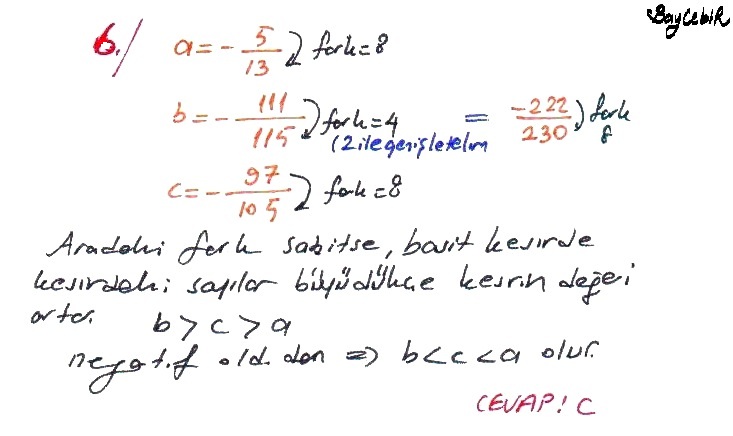 BayCebiR
6. a = - 5/13 fark=8
b = - 111/115 fark=4 (2 ile genişletelim = -222/230 fark 8
c = - 97/105 fark=8
Aradaki fark sabitse, basit kesirde
kesirdeki sayılar büyüdükçe kesrin değeri
artar. b > c > a
negatif old. dan => b < c < a olur.
CEVAP: C